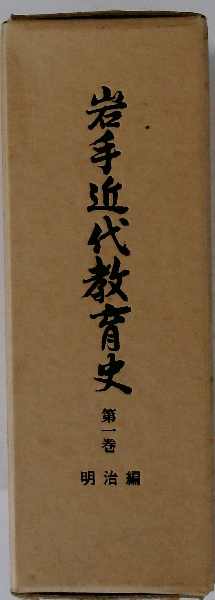 岩手近代教育史
第一巻
明治編